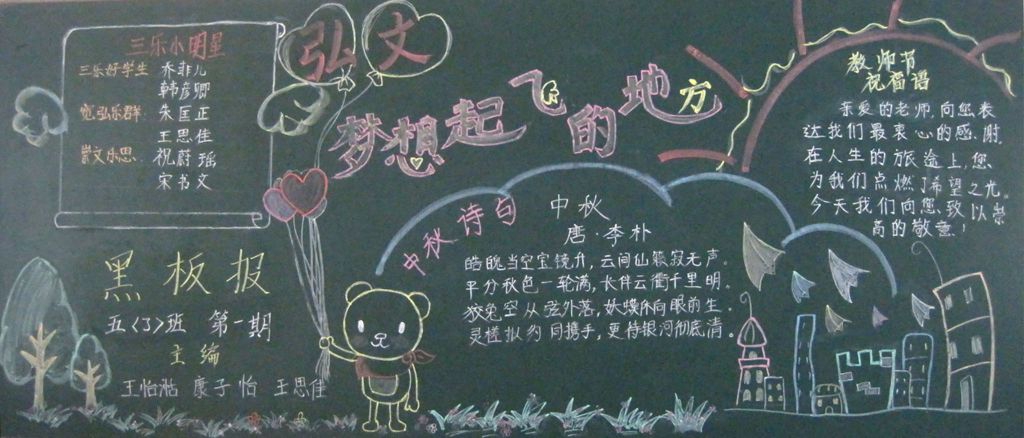 三乐小明星
三乐好学生 乔菲儿
韩彦卿
宽弘乐群 朱匡正
王思佳
崇文乐思 祝蔚瑶
宋书文
弘文
梦想起飞的地方
教师节
祝福语
亲爱的老师,向您表
达我们最衷心的感谢。
在人生的旅途上,您
为我们点燃了希望之光。
今天我们向您致以崇
高的敬意!
中秋诗句
中秋
唐·李朴
皓魄当空宝镜升,云间仙籁寂无声。
平分秋色一轮满,长伴云衢千里明。
狡兔空从弦外落,妖蟆休向眼前生。
灵槎拟约同携手,更待银河彻底清。
黑板报
五〈3〉班 第一期
主编
王怡 康子怡 王思佳